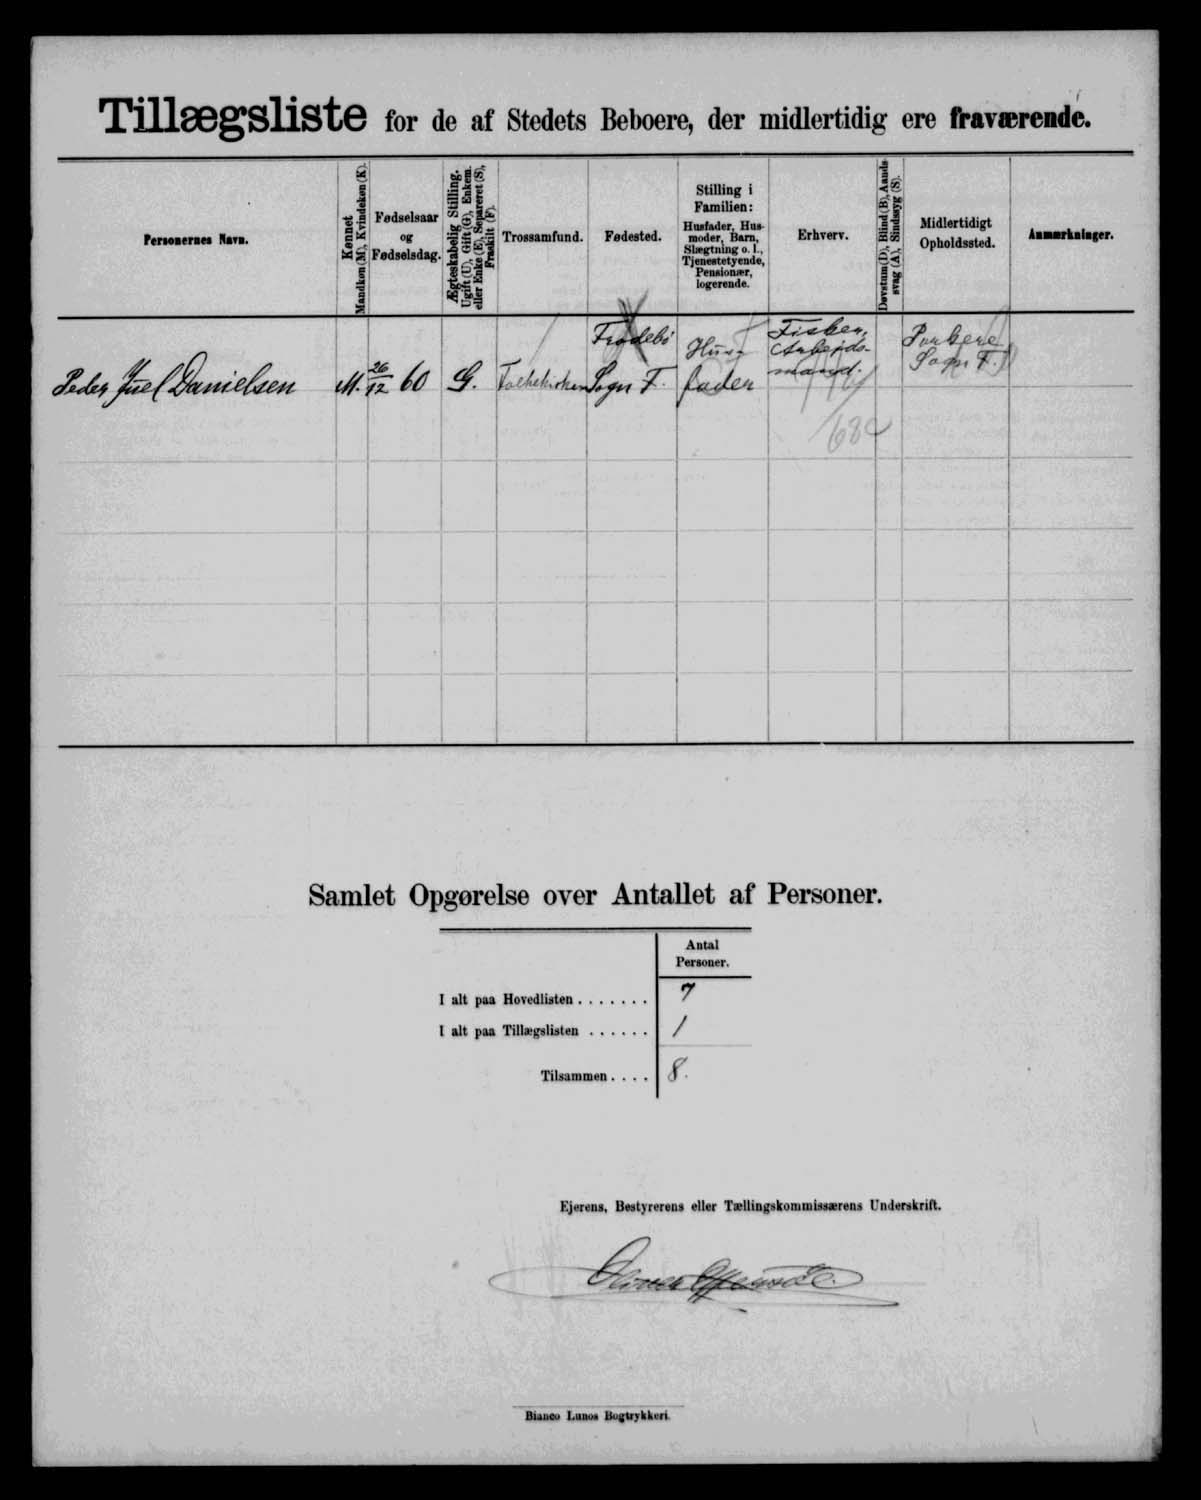 Tillægsliste for de af Stedets Beboere, der midlertidig ere fraværende.
Personernes Navn.
Kønnet
Mandkøn (M), Kvindekøn (K).
Fødselsaar
og
Fødselsdag.
Ægteskabelig Stilling.
Ugift (U), Gift (G), Enkem.
eller Enke (E), Separeret (S),
Fraskilt (F).
Trossamfund.
Fødested.
Stilling i
Familien:
Husfader, Hus-
moder, Barn,
Slægtning o. l.,
Tjenestetyende,
Pensionær,
logerende.
Erhverv.
Døvstum (D), Blind (B), Aands-
svag (A), Sindssyg (S).
Midlertidigt
Opholdssted.
Anmærkninger.
Peder Juel Danielsen
M.
26/12 60
G.
Folkekirken
Frodebø
Sogn F.
Hus-
fader
Fisker,
Arbejds-
mand.
Porkere
Sogn F.
680
Samlet Opgørelse over Antallet af Personer.
Antal
Personer.
I alt paa Hovedlisten . . . . . . . 7
I alt paa Tillægslisten . . . . . . 1
Tilsammen . . . . 8.
Ejerens, Bestyrerens eller Tællingskommissærens Underskrift.
Bianco Lunos Bogtrykkeri.